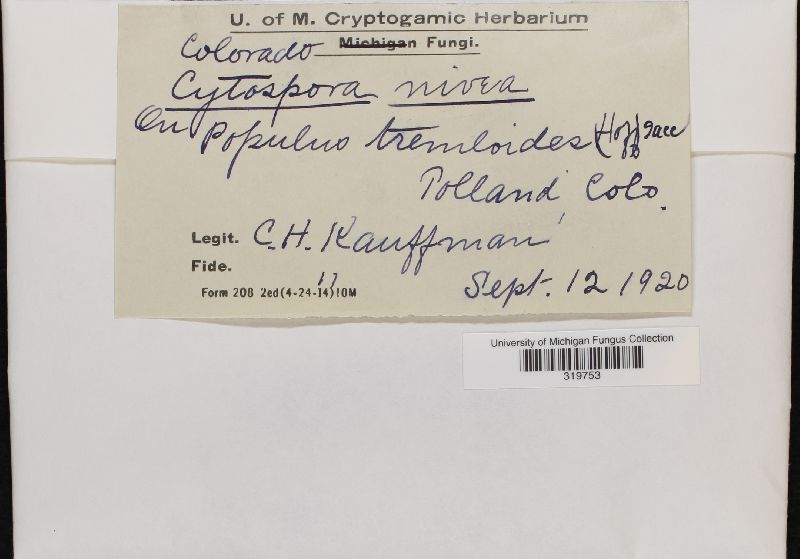 U. of M. Cryptogamic Herbarium
Colorado Michigan Fungi.
Cytospora nivea
On Populus tremloides (Hoff) Sacc
Tolland Colo.
Legit. C.H. Kauffman
Fide.
Sept. 12 1920
Form 208 2ed(4-24-14)10M
University of Michigan Fungus Collection
319753